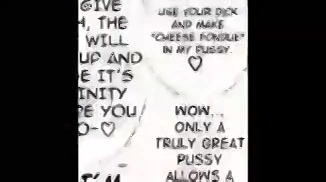 GIVE
H, THE
WILL
UP AND
E IT'S
INITY
RE YOU
O-♡
I'M
USE YOUR DICK
AND MAKE
"CHEESE FONDUE"
IN MY PUSSY.
♡
WOW...
ONLY A
TRULY GREAT
PUSSY
ALLOWS A